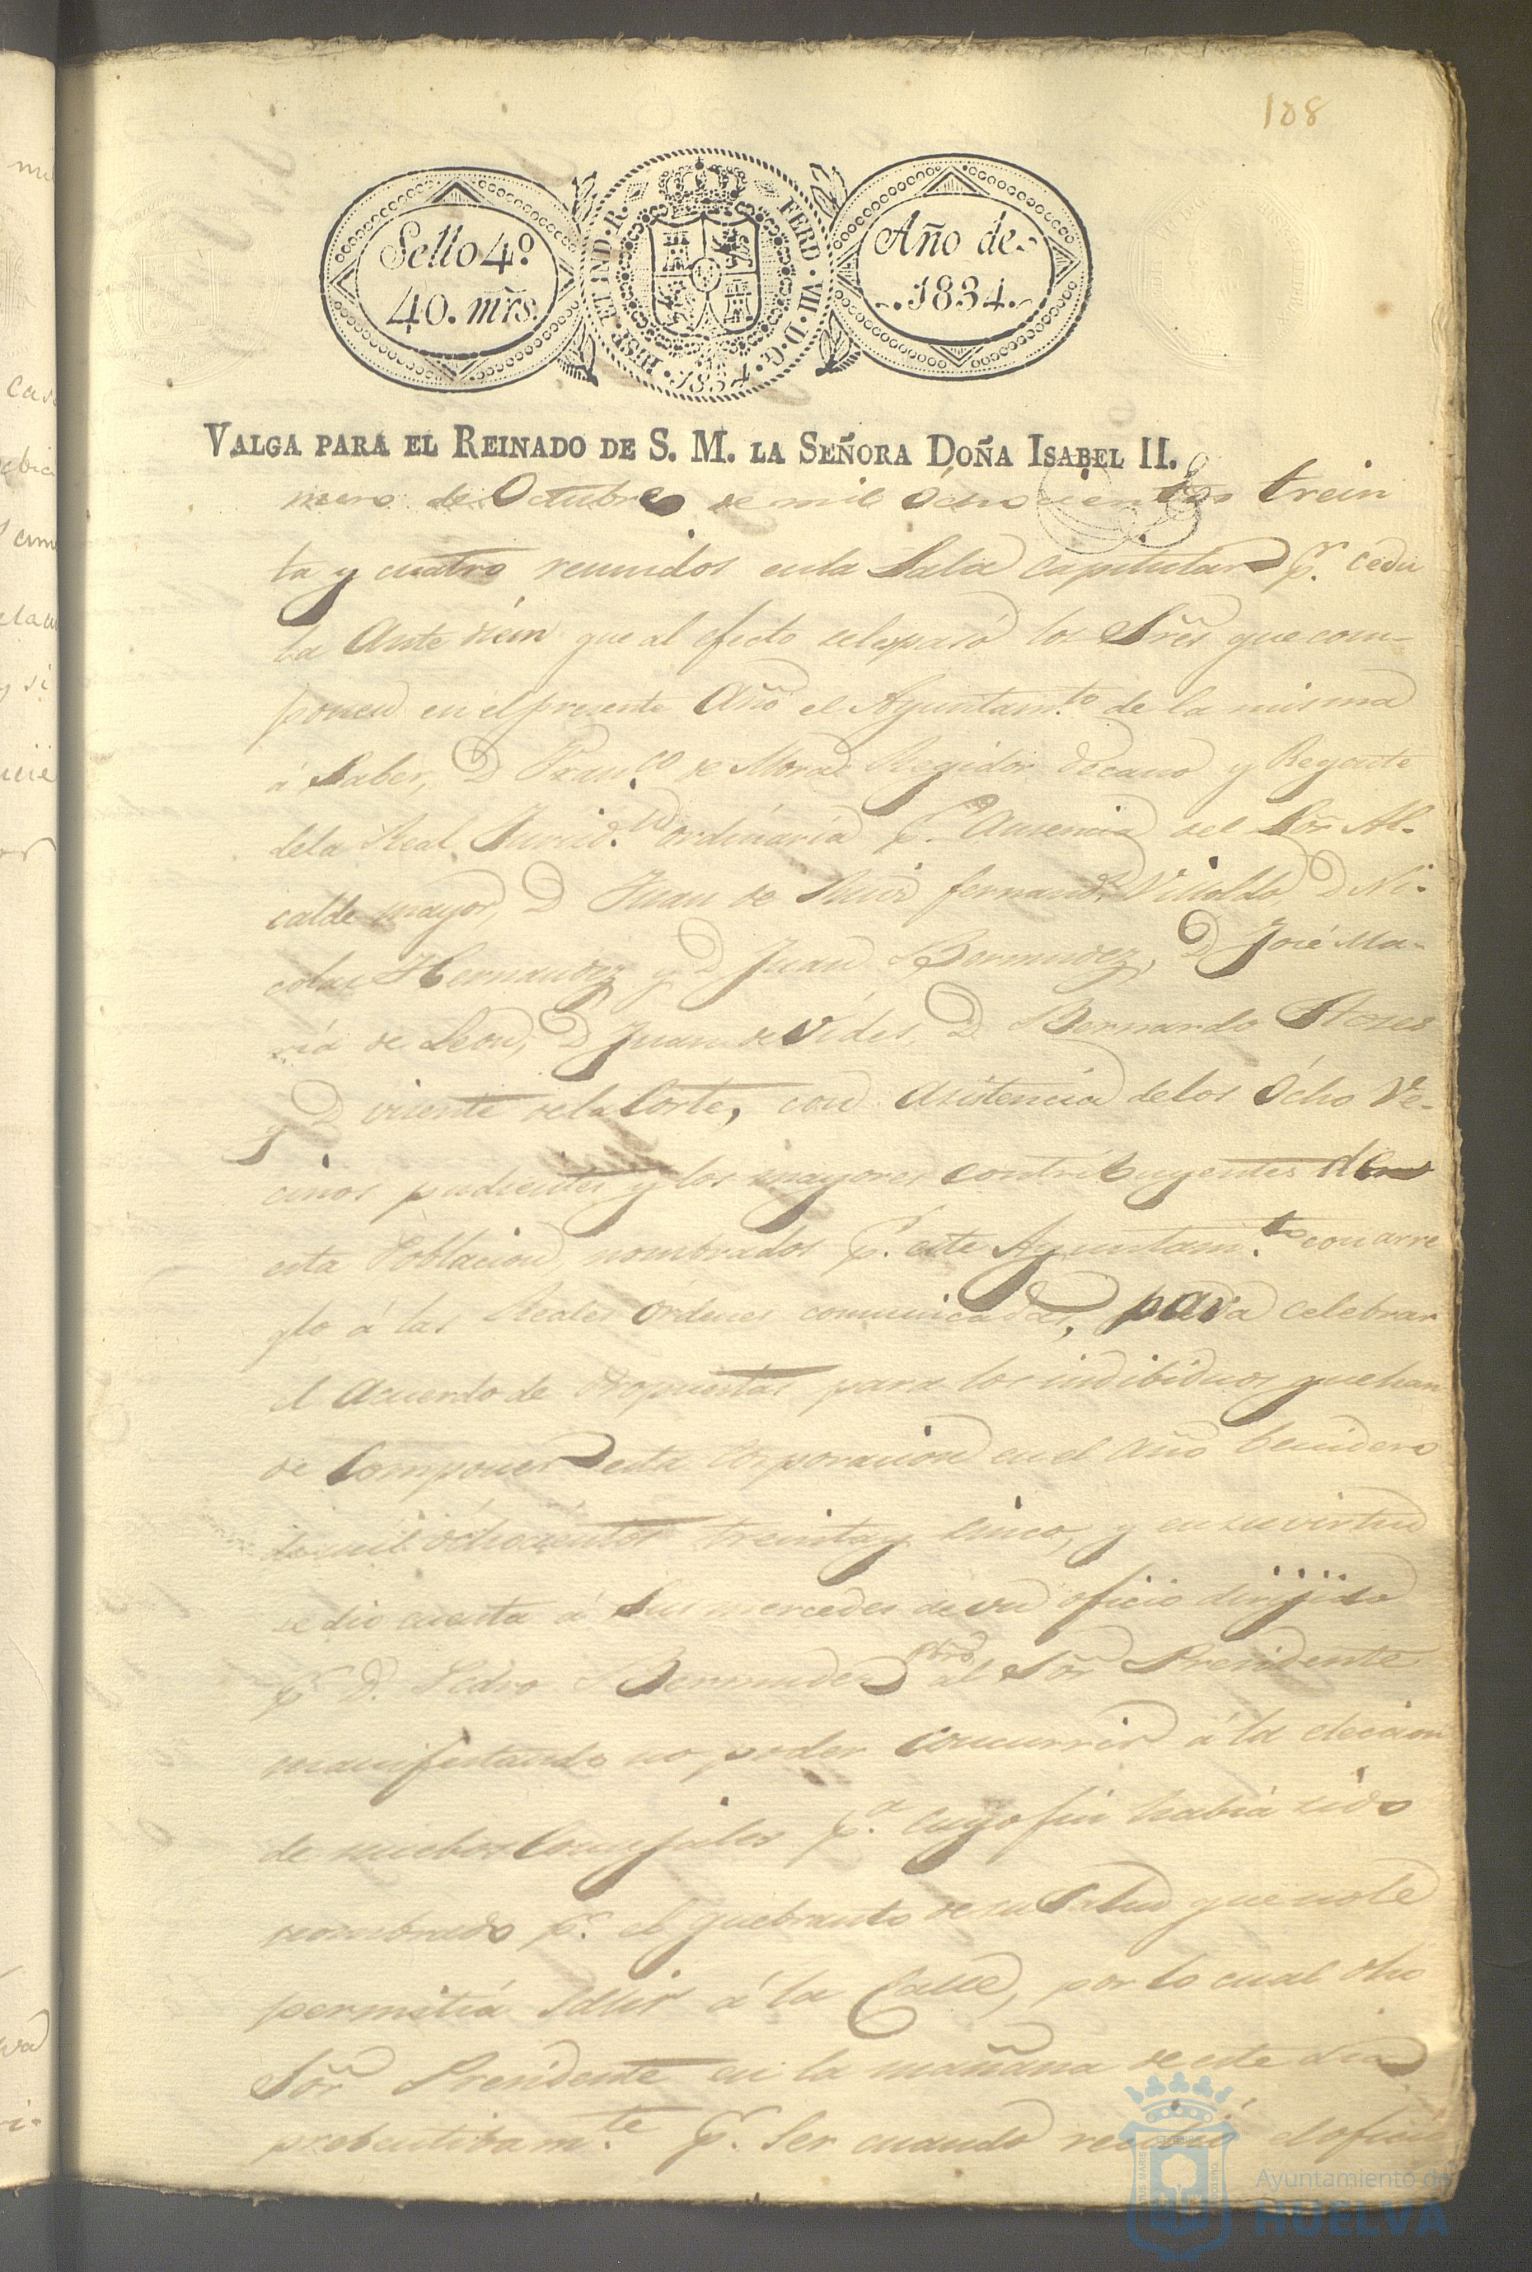 108
Sello 4º
40. mrs.
HISP. ET IND. R. FERD. VII. D. G. 1834.
Año de
1834.
VALGA PARA EL REINADO DE S. M. LA SEÑORA DOÑA ISABEL II.
mero de Octubre de mil óchocientos trein
ta y cuatro reunidos en la Sala capitular pr. cedu
la Ante diem que al efecto se les pasó los Sres que com-
ponen en el presente Año el Ayuntam.to de la misma
á Saber, D Fran.co de Mora Regidor decano y Regente
de la Real Jurisd. ordinaria pr. Ausencia del Sor Al-
calde mayor, D Juan de Villoldo, D Ni-
colas Hernandez y D Juan Bermudez, D José Ma-
ría de Leon, D Juan de Vides, D Bernardo Flores
y D vicente de la Corte, con Asistencia de los Ócho Ve-
cinos pudientes y los mayores contribuyentes de
esta Poblacion, nombrados pr. este Ayuntam.to con arre
glo á las Reales órdenes comunicadas, para celebrar
el Acuerdo de propuestas para los indibiduos que han
de componer esta Corporacion en el Año benidero
de mil óchocientos treinta y Cinco, y en su virtud
se dio cuenta á Sus mercedes de un oficio dirijido
pr D. Pedro Bermudez pbro al Sor Presidente
manifestando no poder concurrir á la eleccion
de nuebos Concejales pa. cuyo fin había sido
nombrado pr. el quebranto de su Salud que no le
permitía Salir á la Calle, por lo cual dho
Sor Presidente en la mañana de este dia
prebentibam.te pr. Ser cuando recibió el oficio
Ayuntamiento de
HUELVA